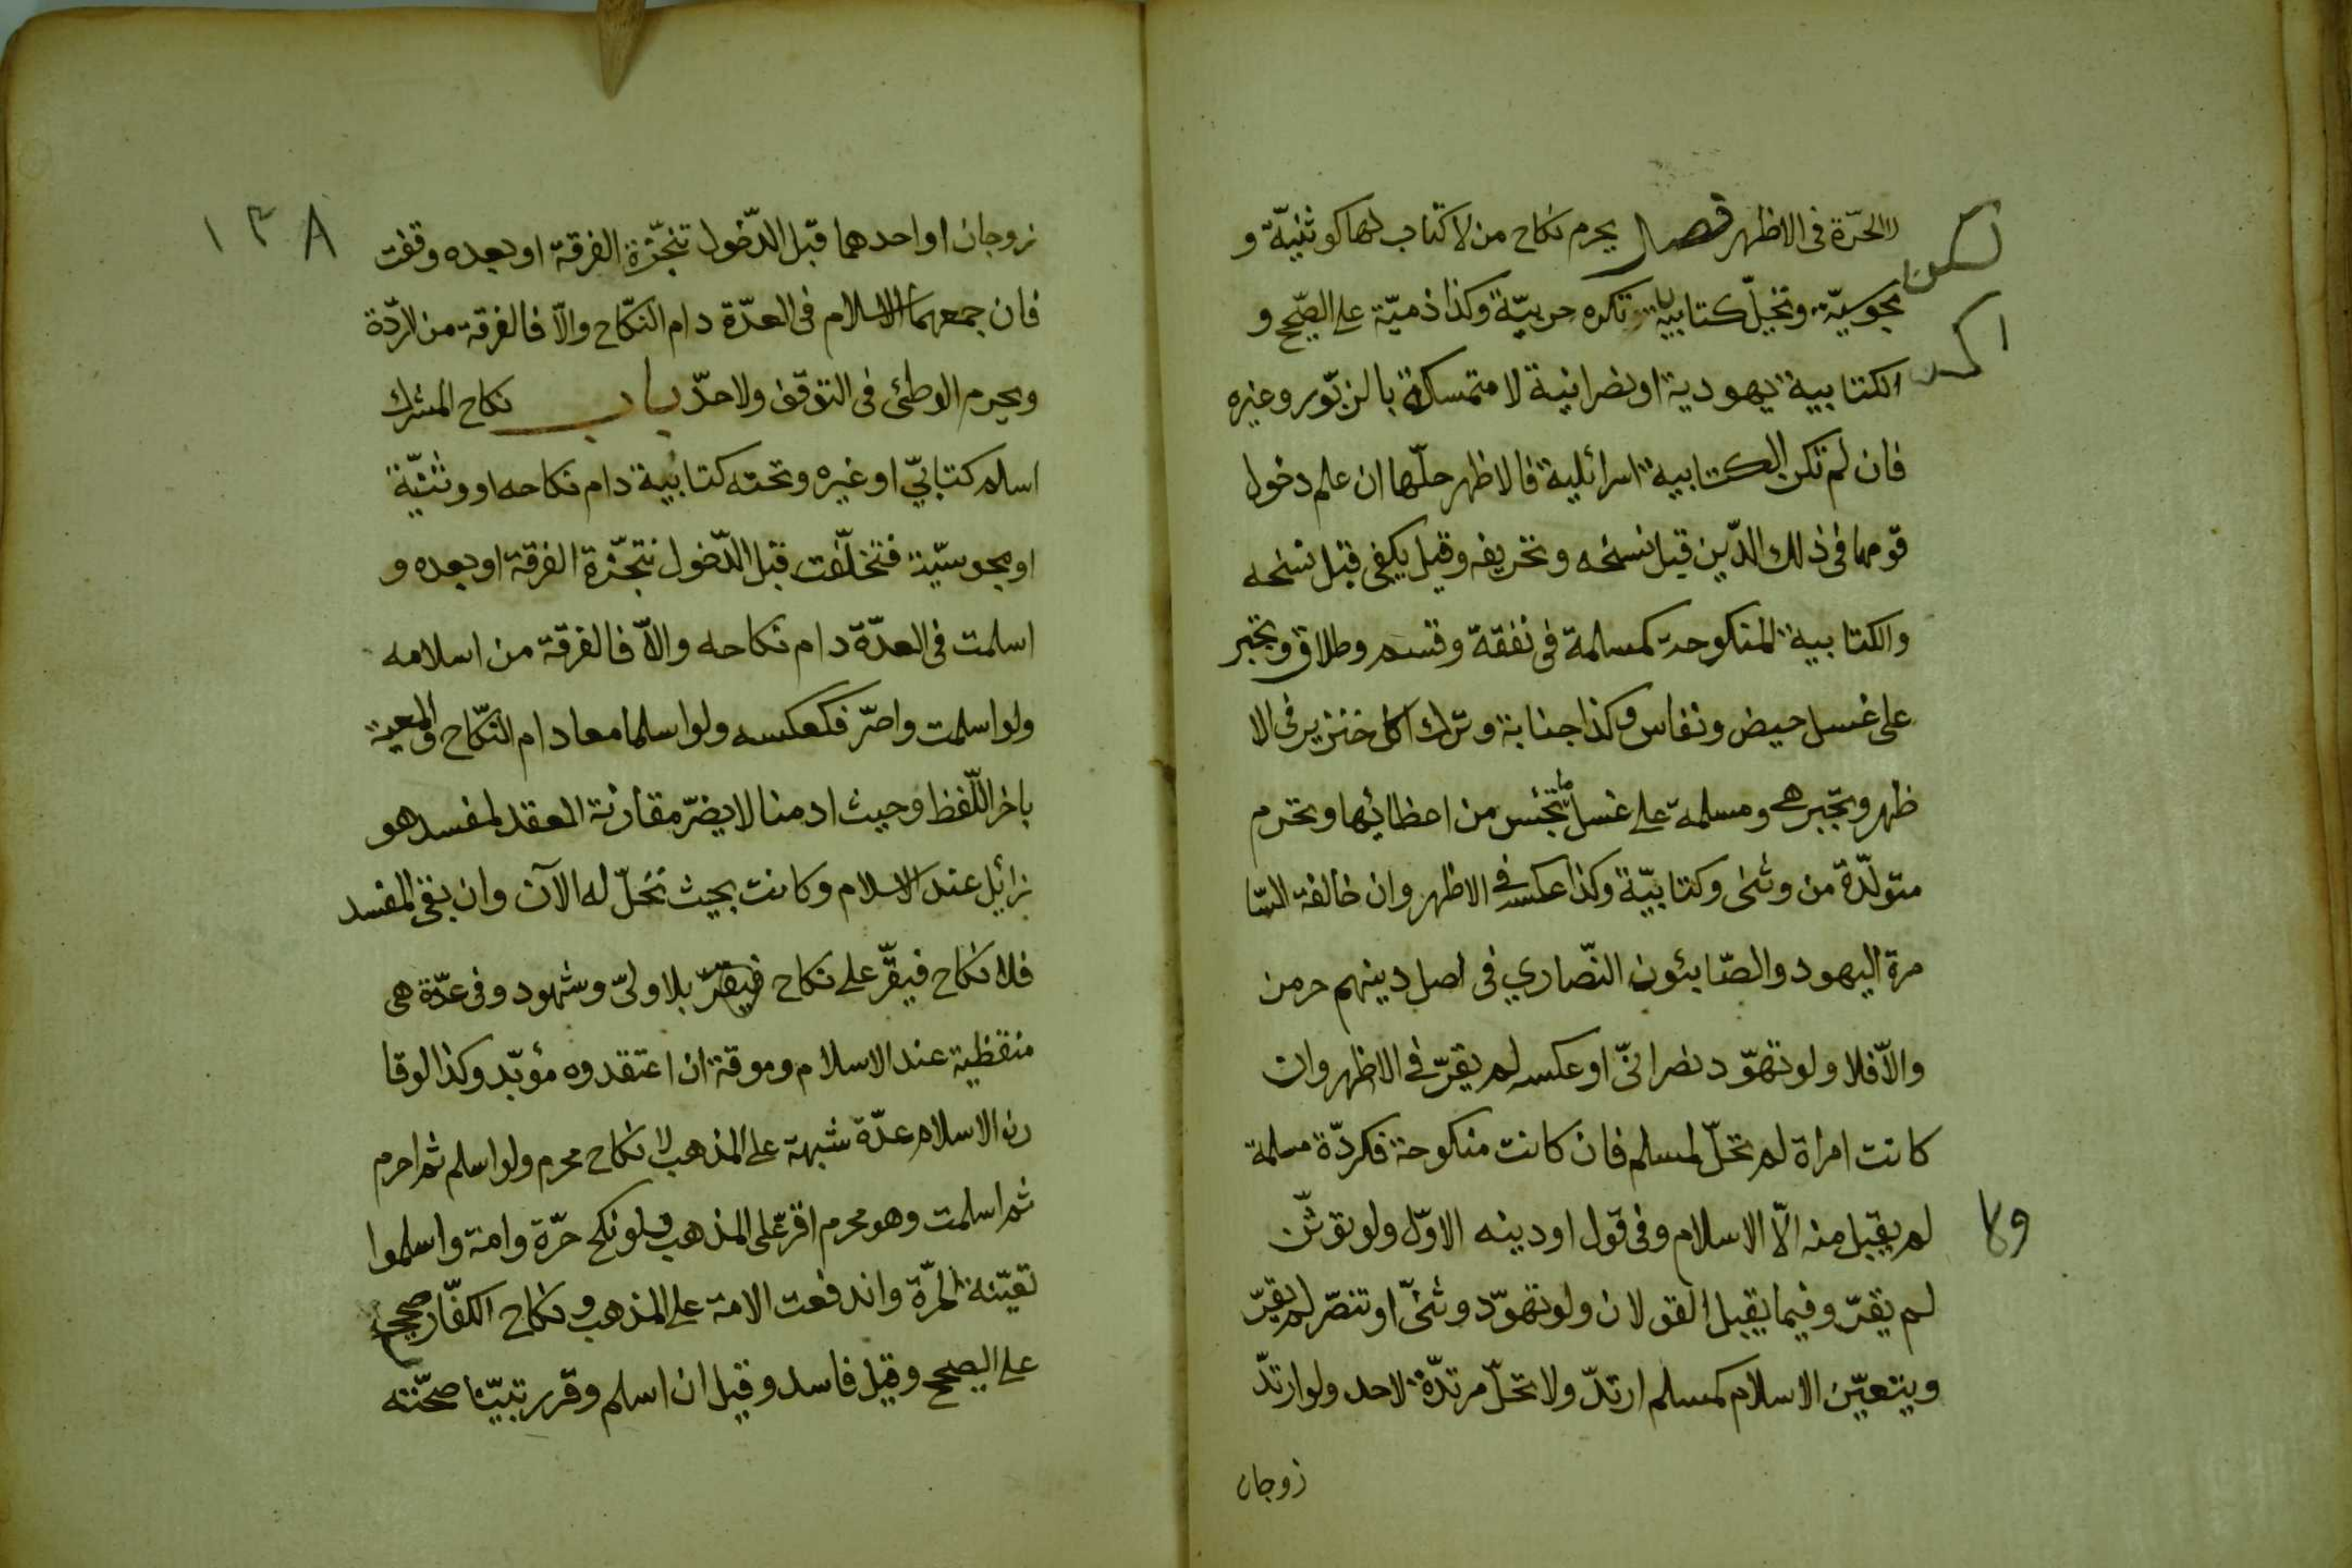 الحرّة فى الاظهر فصل يحرم نكاح من لا كتاب لها كوثنيّة و
مجوسيّة وتحلّ كتابية لكن تكره حربيّة وكذا ذميّة على الصّحيح و
الكتابية يهودية او نصرانية لا متمسكة بالزبّور وغيره
فان لم تكن الكتابية اسرائلية فالاظهر حلّها ان علم دخول
قومها فى ذلك الدّين قبل نسخه وتحريفه وقيل يكفى قبل نسخه
والكتابية المنكوحة كمسلمة فى نفقة وقسم وطلاق وتجبر
على غسل حيض ونفاس وكذا جنابة وترك اكل خنزير فى الا
ظهر وتجبر هى ومسلمة على غسل ما تنجّس من اعظائها وتحرم
متولّدة من وثنى وكتابيّة وكذا عكسه فى الاظهر وان خالفة السّا
مرة اليهود والصّابئون النّصاري فى اصل دينهم حرمن
والاّ فلا ولو تهوّد نصرانىّ او عكسه لم يقرّ فى الاظهر وان
كانت امراة لم تحلّ لمسلم فان كانت منكوحة فكردّة مسلمة
لم يقبل منه الاّ الاسلام وفى قول او دينه الاوّل ولو توثّن
لم يقرّ وفيما يقبل القولان ولو تهوّد وثنىّ او تنصّر لم يقرّ
ويتعيّن الاسلام كمسلم ارتدّ ولا تحلّ مرتدّة لاحد ولو ارتدّ
زوجان
١٣٨
زوجان او احدهما قبل الدّخول تنجّزة الفرقة او بعده وقفت
فان جمعهما الاسلام فى العدّة دام النكّاح والاّ فالفرقة من الردّة
ويحرم الوطئ فى التوقف ولا حدّ باب نكاح المشرك
اسلم كتابيّ او غيره وتحته كتابية دام نكاحه او وثنيّة
او مجوسيّة فتخلّفت قبل الدّخول تنجّزة الفرقة او بعده و
اسلمت فى العدّة دام نكاحه والاّ فالفرقة من اسلامه
ولو اسلمت واصرّ فكعكسه ولو اسلما معا دام النكّاح والمعية
باخر اللّفظ وحيث ادمنا لا يضرّ مقارنة العقد لمفسد هو
زائل عند الاسلام وكانت بحيث تحلّ له الآن وان بقى المفسد
فلا نكاح فيقرّ على نكاح فيقرّ بلا ولىّ وشهود وفى عدّة هى
منقظية عند الاسلام وموقة ان اعتقدوه مؤبّد وكذا لو قا
رن الاسلام عدّة شبهة على المذهب لا نكاح محرم ولو اسلم ثم احرم
ثم اسلمت وهو محرم اقرّ على المذهب ولو نكح حرّة وامة واسلموا
تعيّنة الحرّة واندفعت الامة على المذهب ونكاح الكفّار صحيح
على الصحيح وقيل فاسد وقيل ان اسلم وقرر تبيّنا صحّته